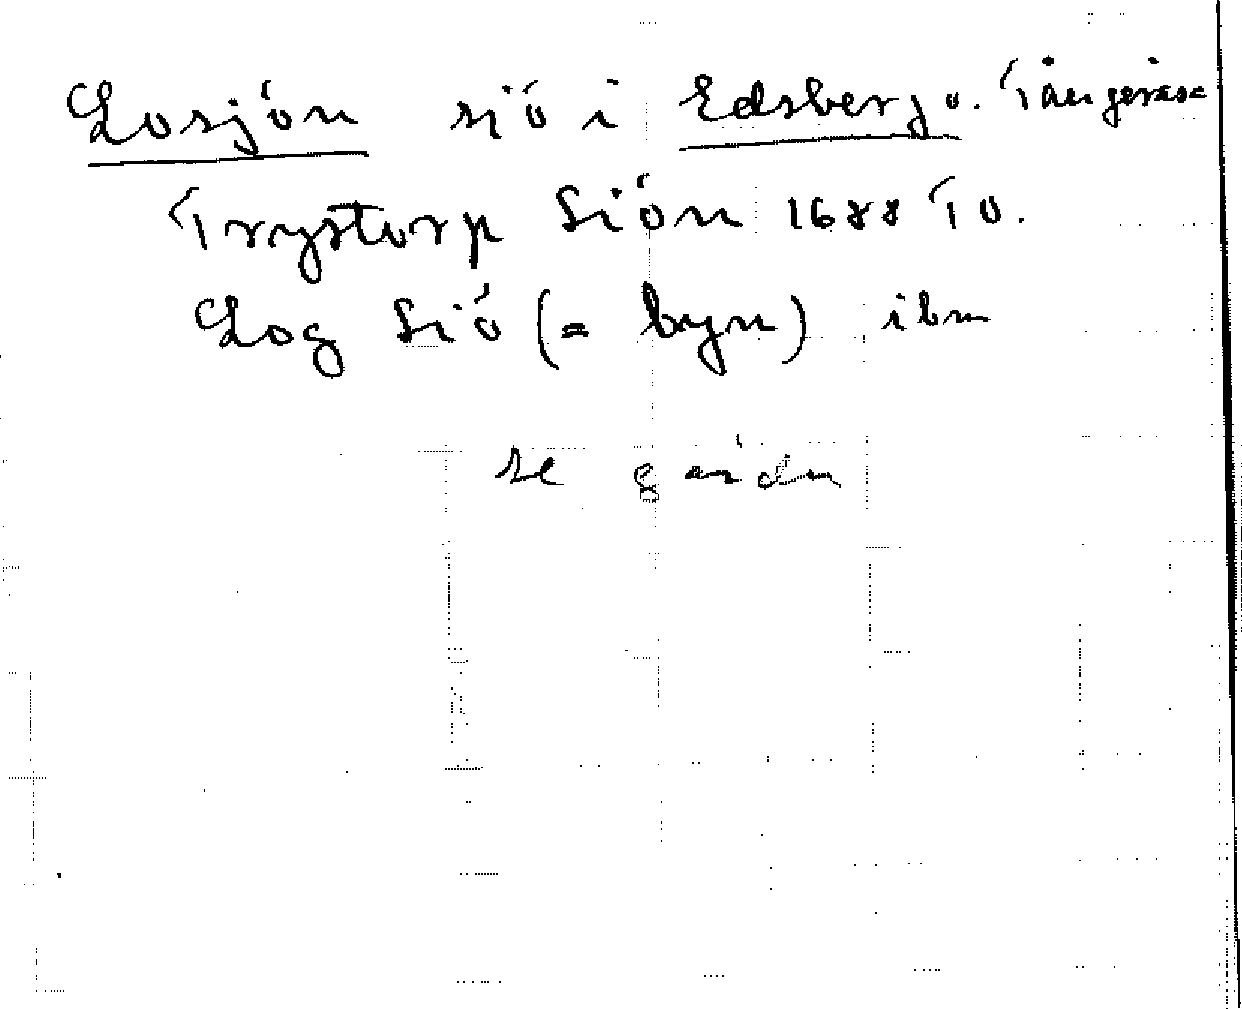 Losjön sjö i Edsberg o. Tångeråsa
Trystorp Siön 1688 TO.
Log Siö (= byn) ibm
se gården